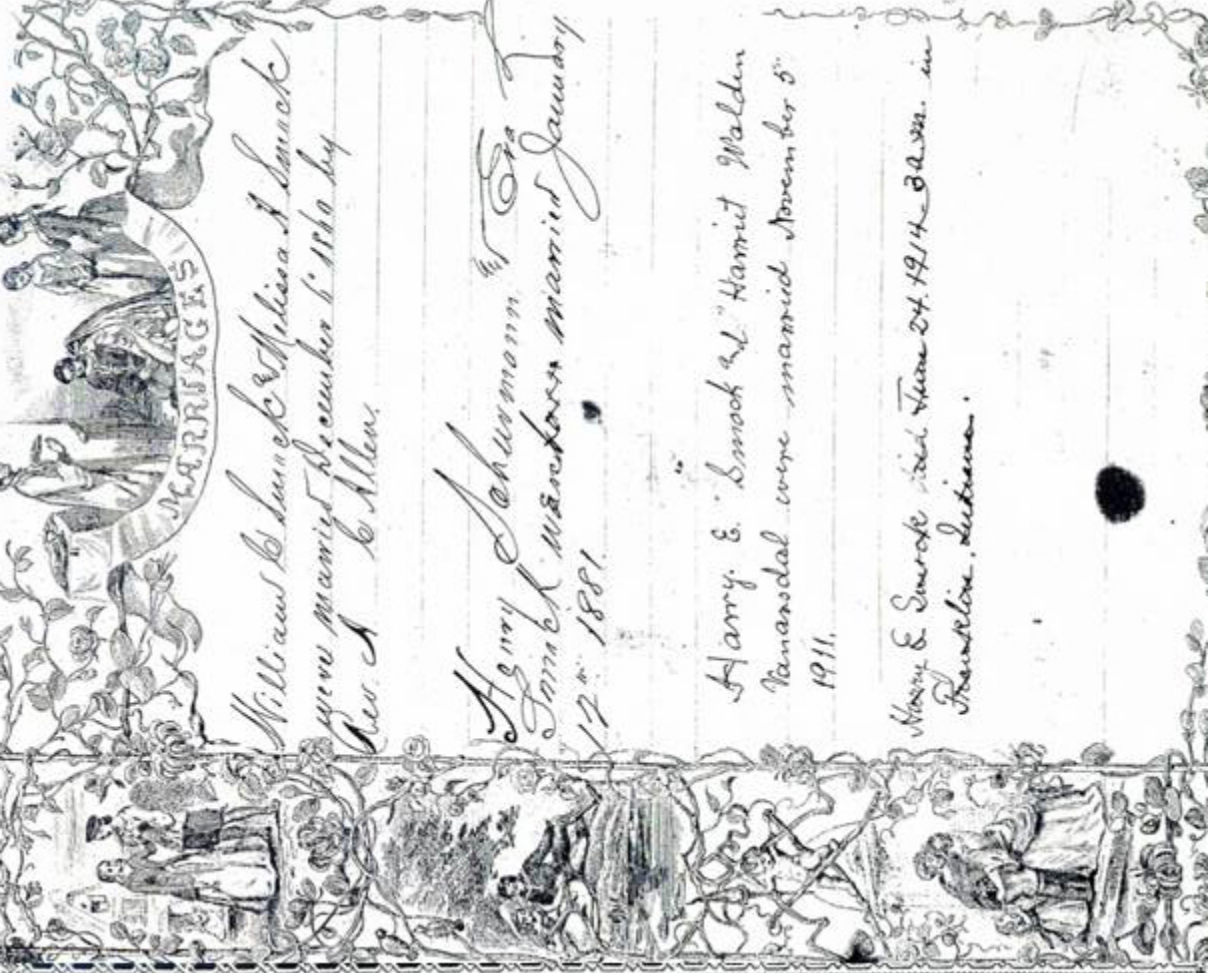 MARRIAGES
William C Smock & Melissa A Smock
were married December 6th 1860 by
Rev. A C Allen.
Henry Schurmann and Eva L
Smock were married January
12th 1881.
Harry. E. Smock and Harriet Walden
Vanarsdal were married November 5th
1911.
Harry E Smock died June 24. 1914 3 a.m. in
Franklin. Indiana.